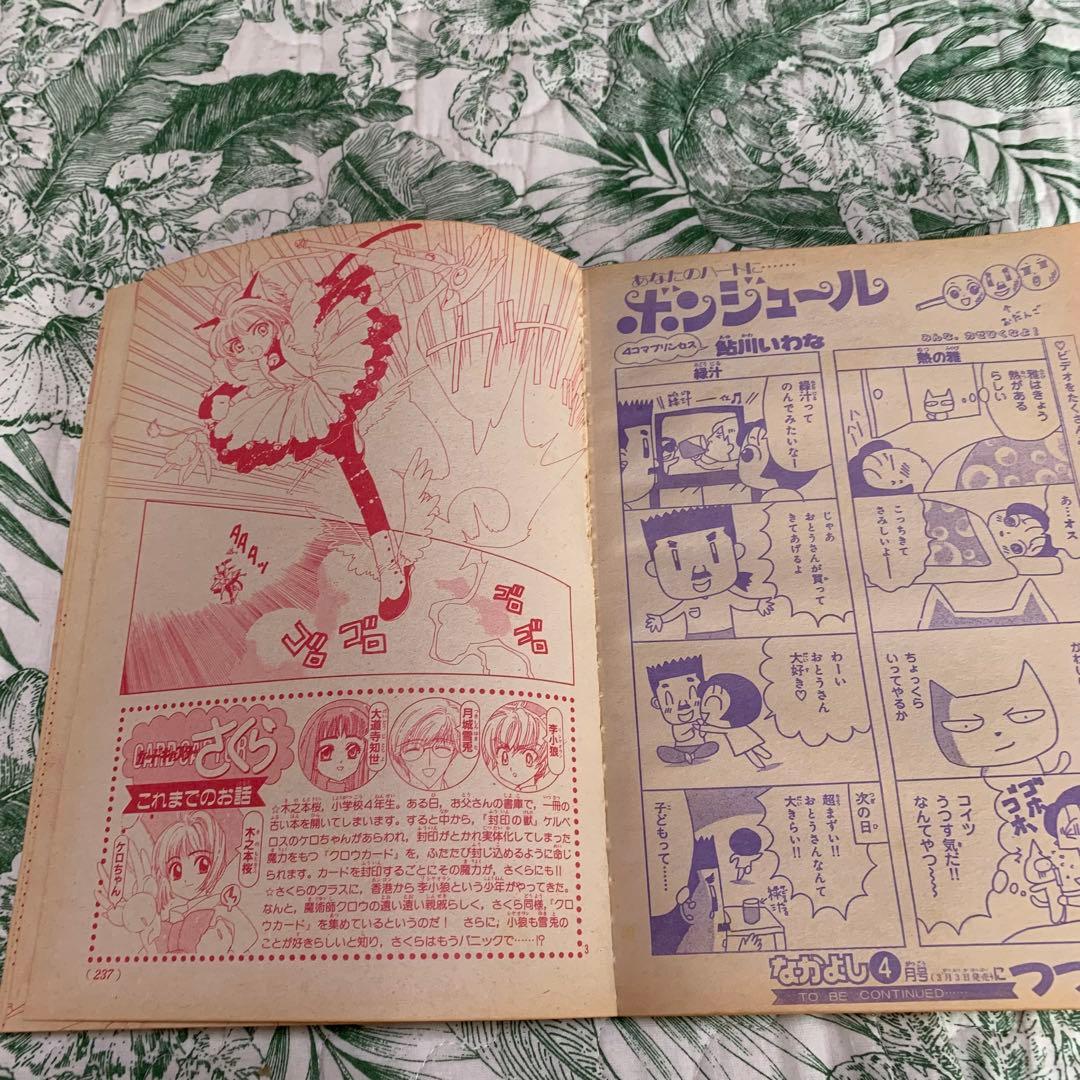 AAAッ
ゴロ
ゴロ
ゴロ
ゴロ
カードキャプター
さくら
これまでのお話
大道寺知世
月城雪兎
李小狼
木之本桜
ケロちゃん
☆木之本桜，小学校4年生。ある日，お父さんの書庫で，一冊の
古い本を開いてしまいます。すると中から，「封印の獣」ケルベ
ロスのケロちゃんがあらわれ，封印がとかれ実体化してしまった
魔力をもつ「クロウカード」を，ふたたび封じ込めるように命じ
られます。カードを封印するごとにその魔力が，さくらにも!!
☆さくらのクラスに，香港から李小狼という少年がやってきた。
なんと，魔術師クロウの遠い遠い親戚らしく，さくら同様，「クロ
ウカード」を集めているというのだ！ さらに，小狼も雪兎の
ことが好きらしいと知り，さくらはもうパニックで……!?
3
(237)
あなたのハートに……
ボンジュール
4コマプリンセス
鮎川いわな
おだんご
みんな、かぜひくなよ！
♡ビデオをたくさ
熱の雅
雅はきょう
熱がある
らしい
あ…オス
こっちきて
さみしいよー
ちょっくら
いってやるか
ゴホ
ゴホ
コイツ
うつす気だ!!
なんてやつ〜〜
緑汁
緑汁って
のんでみたいなー
じゃあ
おとうさんが買って
きてあげるよ
わーい
おとうさん
大好き♡
次の日。
超まずい!!
おとうさんなんて
大きらい!!
緑汁
子どもって……
なかよし4月号(3月3日発売)に
つづ
TO BE CONTINUED……